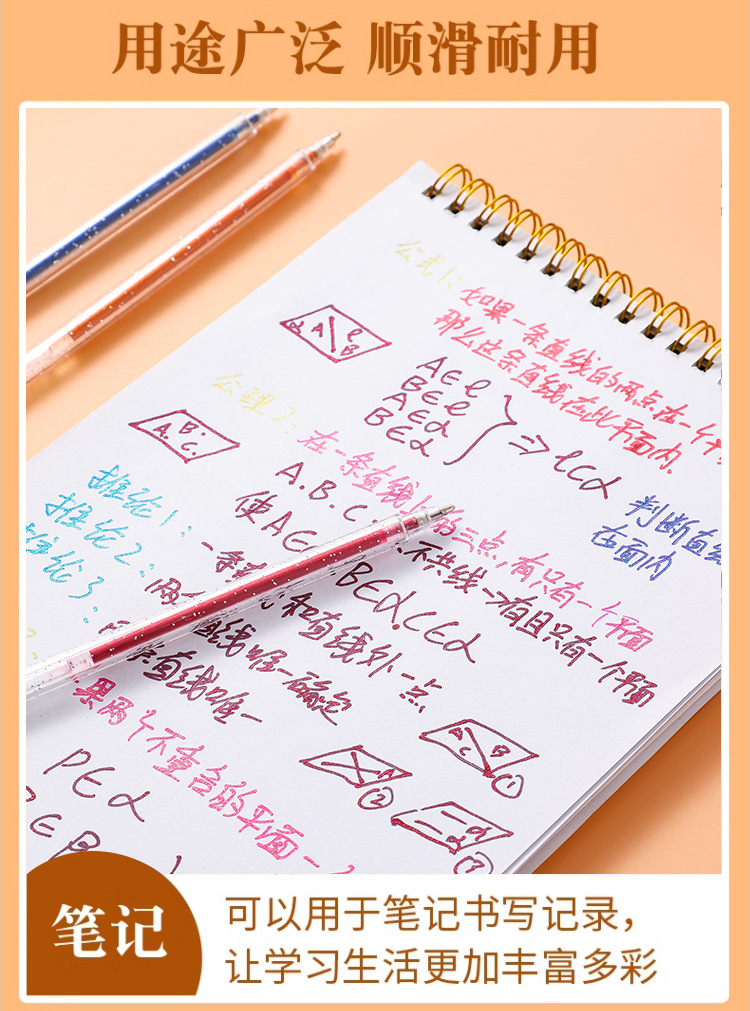 用途广泛 顺滑耐用
公式1:
如果一条直线的两点在一个平
那么这条直线在此平面内.
α A B l
A∈l
B∈l
A∈α
B∈α
⇒ l⊂α
判断直线
在面内
公理2:
在一条直线上的三点,有只有一个平面
B.
A. C.
A.B.C.
不共线→有且只有一个平面
使A∈
B∈α.C∈α
推论1:
推论2:
推论3:
一条直
和直线外一点
两
直线唯一确定
直线唯一
果两个不重合的平面一
P∈α
P∈β
A B
C
①
②
α
③
笔记
可以用于笔记书写记录，
让学习生活更加丰富多彩